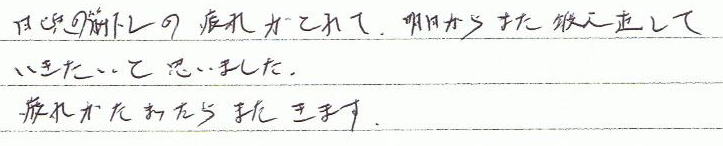 日頃の筋トレの疲れがとれて、明日からまた鍛え直して
いきたいと思いました。
疲れがたまったらまたきます。